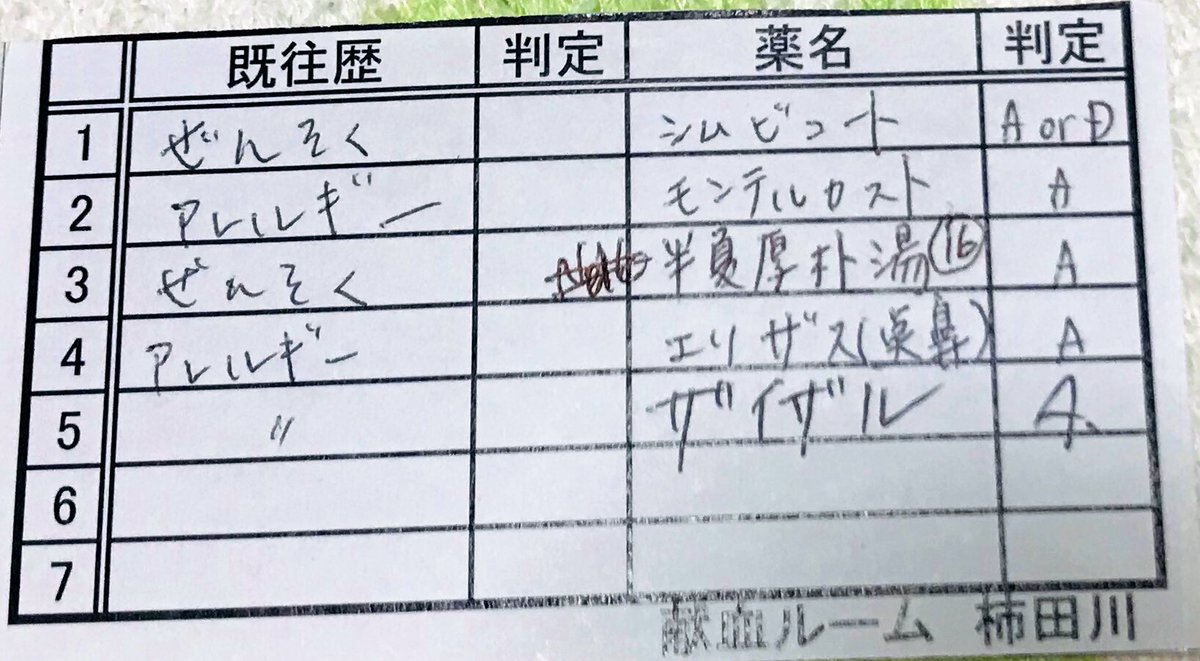 既往歴 判定 薬名 判定
1 ぜんそく シムビコート A or D
2 アレルギー モンテルカスト A
3 ぜんそく 半夏厚朴湯(16) A
4 アレルギー エリザス(点鼻) A
5 〃 ザイザル A
6
7
献血ルーム 柿田川